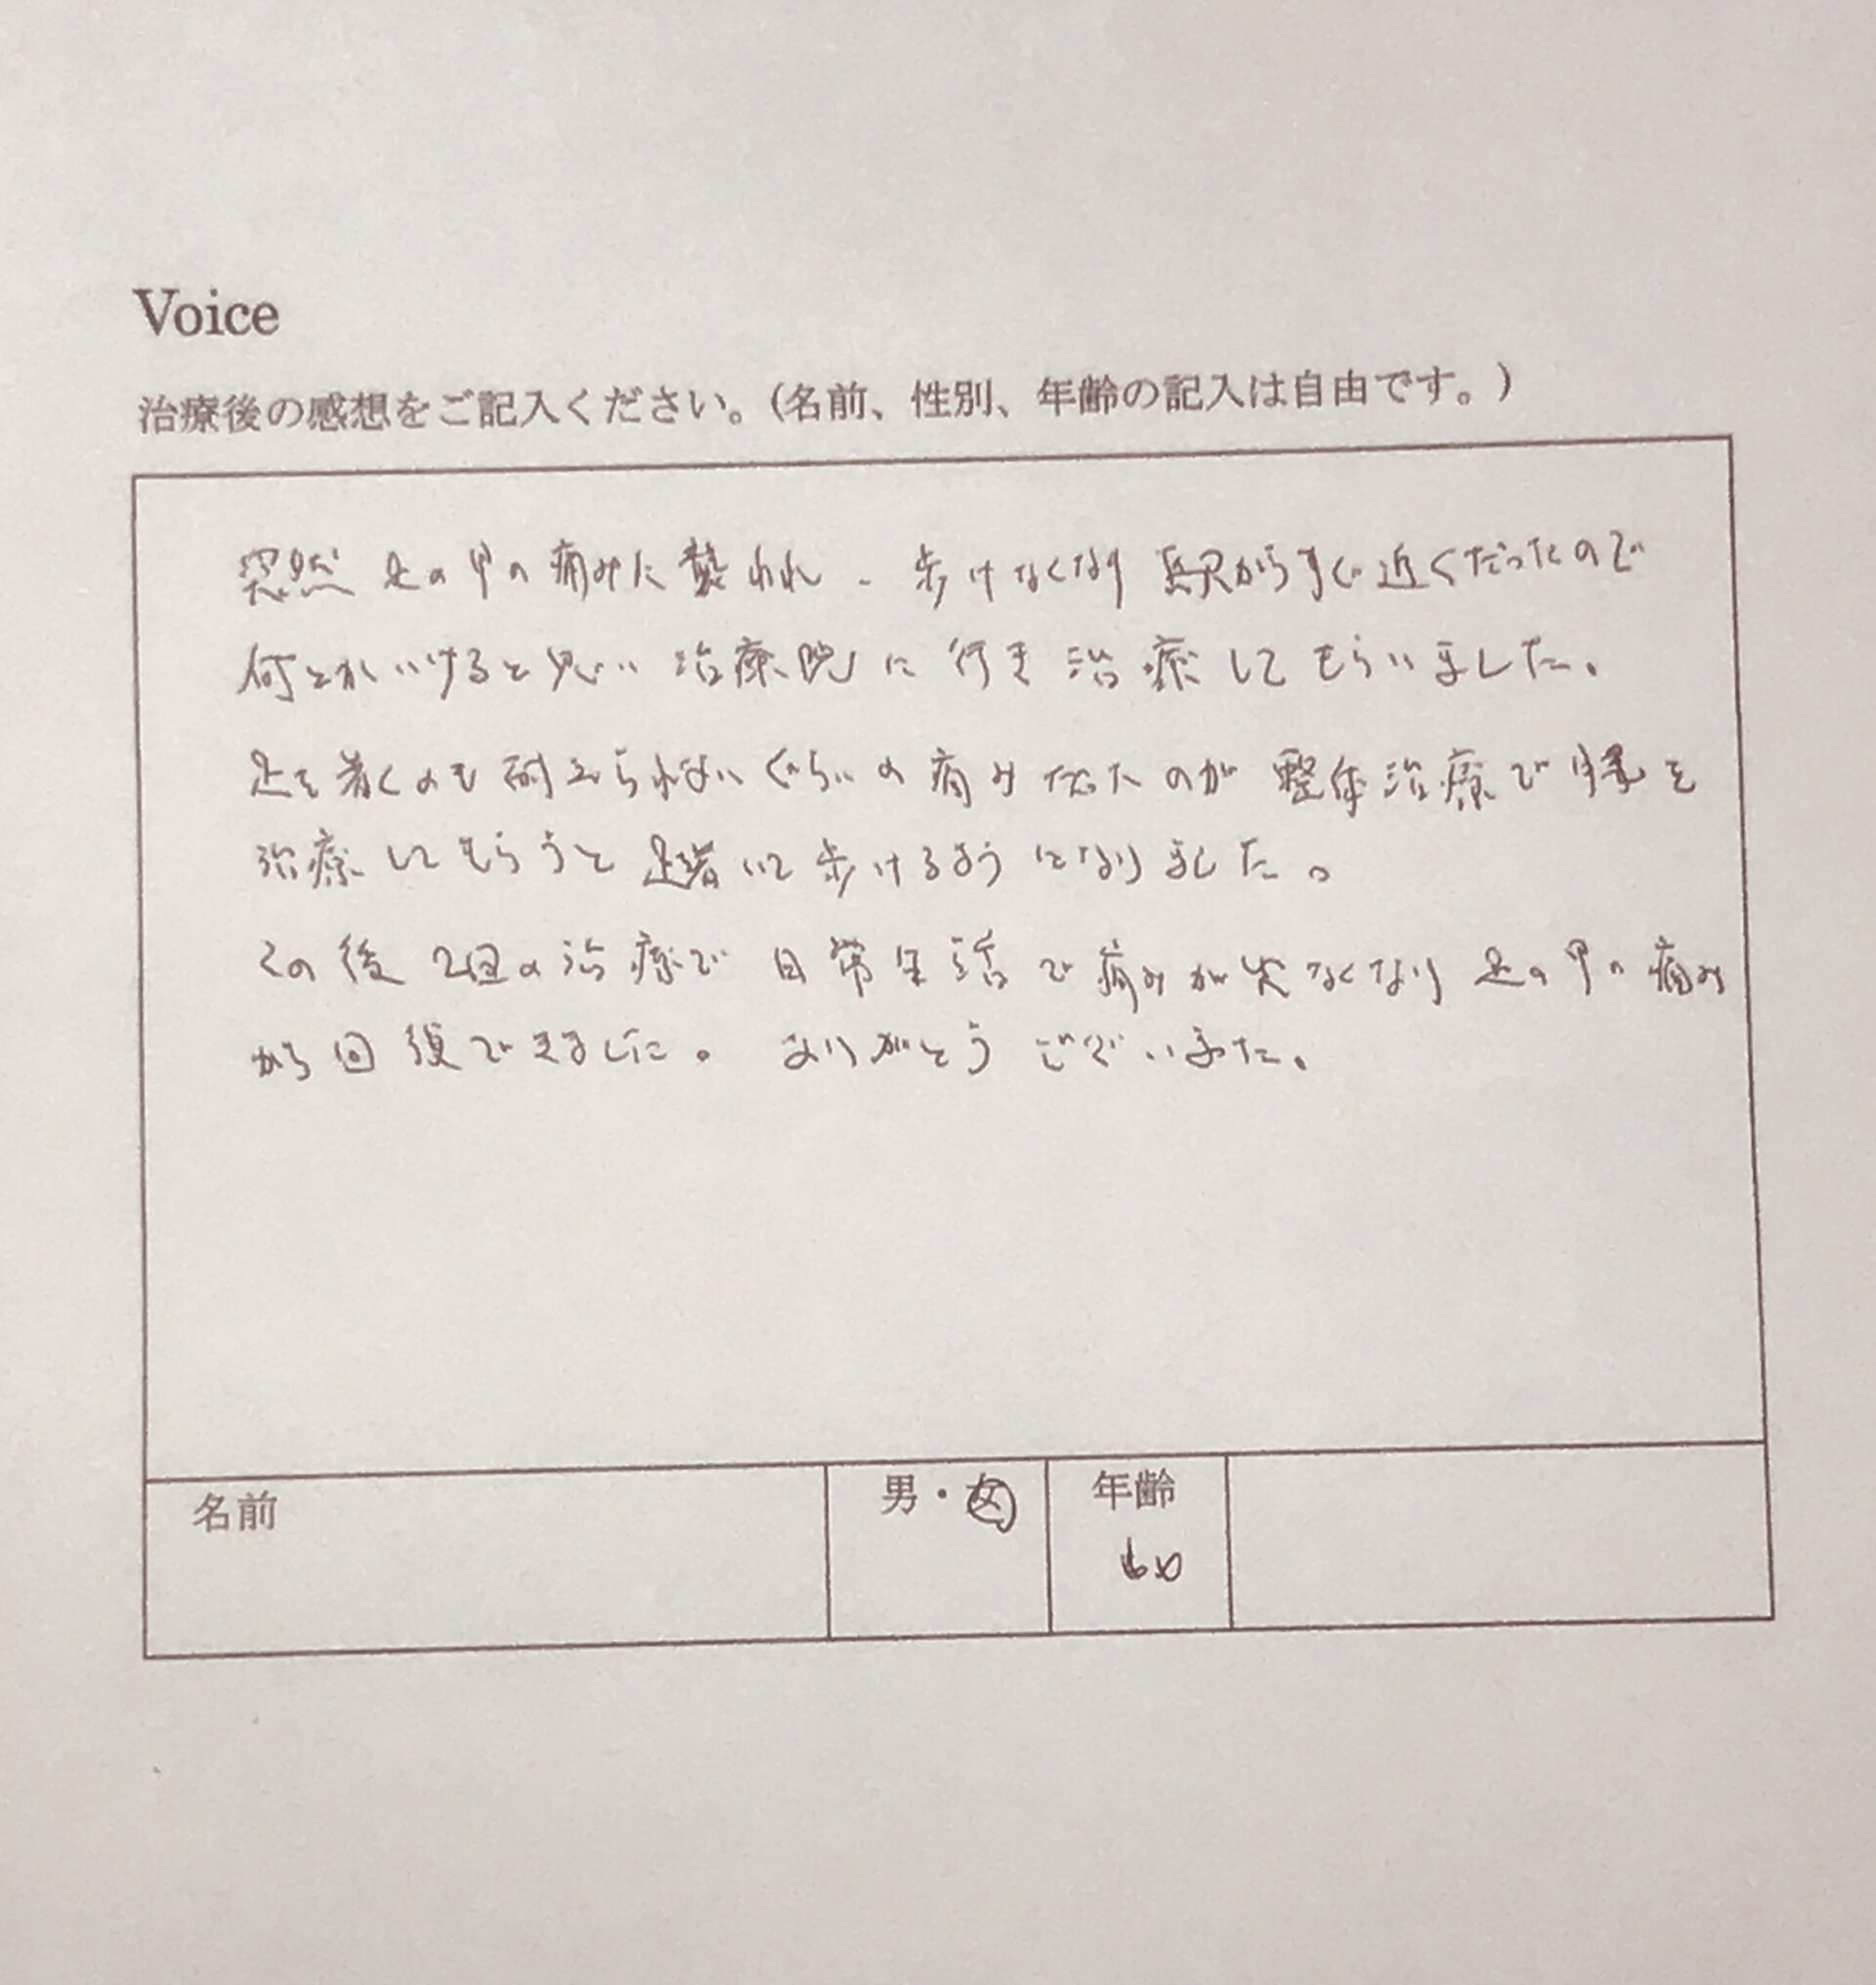 Voice
治療後の感想をご記入ください。(名前、性別、年齢の記入は自由です。)
突然 足の甲の痛みに襲われ、歩けなくなり 駅からすぐ近くだったので
何とかいけると思い 治療院に行き治療してもらいました。
足を着くのも耐えられないぐらいの痛みだったのが 整体治療で腰を
治療してもらうと 足着いて歩けるようになりました。
その後 2回の治療で 日常生活で痛みが出なくなり 足の甲の痛み
から回復できました。 ありがとうございました。
名前 男・女 年齢
60